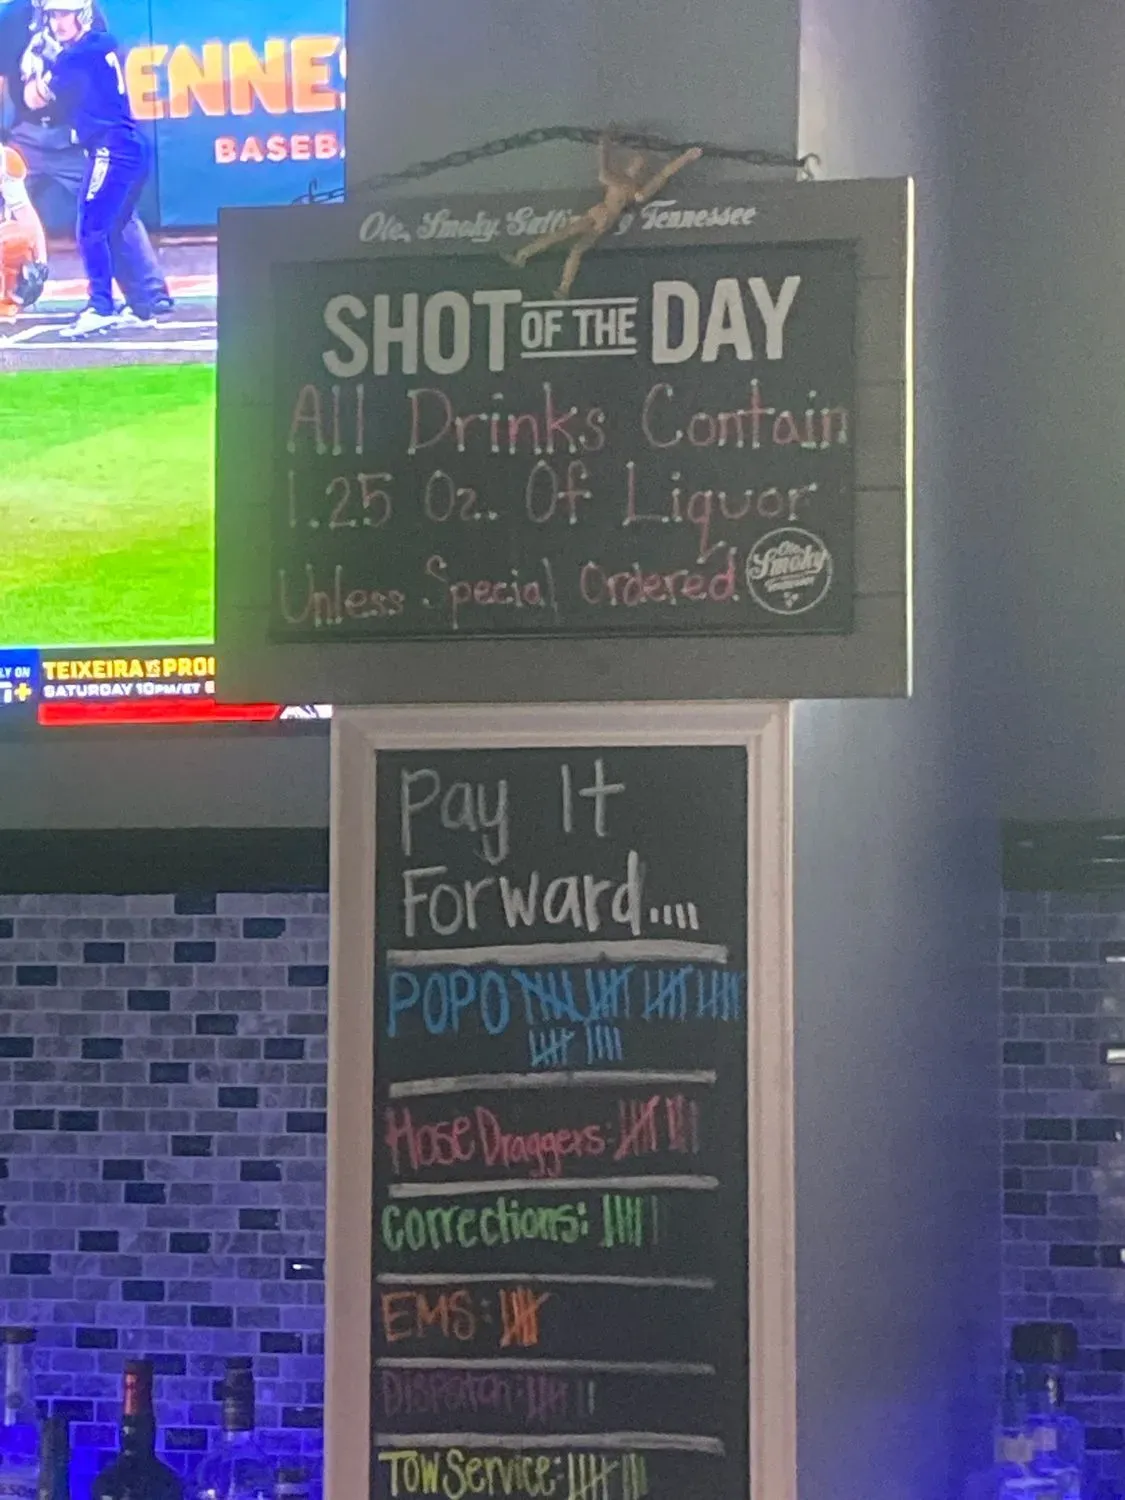 ENNE
BASEB
LY ON
TEIXEIRA VS PRO
SATURDAY 10PM/ET
Ole Smoky Tennessee
SHOT OF THE DAY
All Drinks Contain
1.25 Oz. Of Liquor
Unless Special Ordered
Ole
Smoky
Tennessee
Pay It
Forward....
POPO
Hose Draggers:
Corrections:
EMS:
Dispatch:
Tow Service: